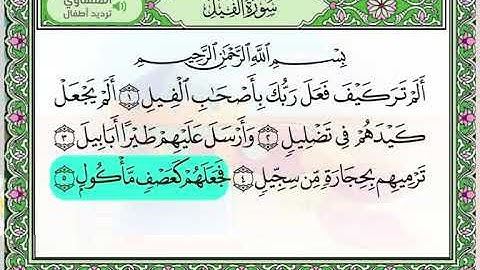 المنشاوي
ترديد أطفال
سُورَةُ الفِيلِ
بِسْمِ اللَّهِ الرَّحْمَٰنِ الرَّحِيمِ
أَلَمْ تَرَ كَيْفَ فَعَلَ رَبُّكَ بِأَصْحَابِ الْفِيلِ ١ أَلَمْ يَجْعَلْ
كَيْدَهُمْ فِي تَضْلِيلٍ ٢ وَأَرْسَلَ عَلَيْهِمْ طَيْرًا أَبَابِيلَ ٣
تَرْمِيهِم بِحِجَارَةٍ مِّن سِجِّيلٍ ٤ فَجَعَلَهُمْ كَعَصْفٍ مَّأْكُولٍ ٥